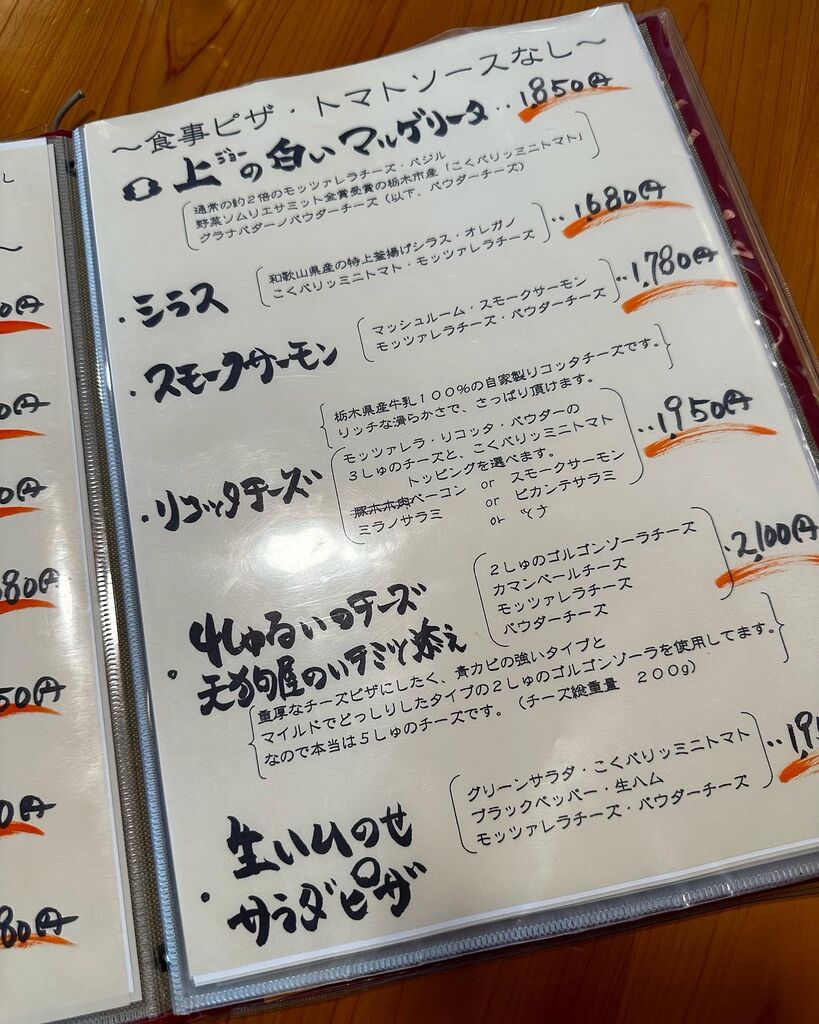 ～食事ピザ・トマトソースなし～
上の白いマルゲリータ‥1,850円
ジョー
通常の約2倍のモッツァレラチーズ・バジル
野菜ソムリエサミット金賞受賞の栃木市産「こくベリッミニトマト」
グラナパダーノパウダーチーズ（以下、パウダーチーズ）
・シラス
和歌山県産の特上釜揚げシラス・オレガノ
こくベリッミニトマト・モッツァレラチーズ
‥1,680円
・スモークサーモン
マッシュルーム・スモークサーモン
モッツァレラチーズ・パウダーチーズ
‥1,780円
栃木県産牛乳１００％の自家製リコッタチーズです。
リッチな滑らかさで、さっぱり頂けます。
・リコッタチーズ
モッツァレラ・リコッタ・パウダーの
３しゅのチーズと、こくベリッミニトマト
トッピングを選べます。
ベーコン or スモークサーモン
ミラノサラミ or ピカンテサラミ
or ツナ
・1,950円
・4しゅるいのチーズ
天狗屋のハチミツ添え
２しゅのゴルゴンゾーラチーズ
カマンベールチーズ
モッツァレラチーズ
パウダーチーズ
・2,100円
重厚なチーズピザにしたく、青カビの強いタイプと
マイルドでどっしりしたタイプの２しゅのゴルゴンゾーラを使用してます。
なので本当は５しゅのチーズです。（チーズ総重量　２００g）
・生ハムのせ
サラダピザ
グリーンサラダ・こくベリッミニトマト
ブラックペッパー・生ハム
モッツァレラチーズ・パウダーチーズ
‥1,9